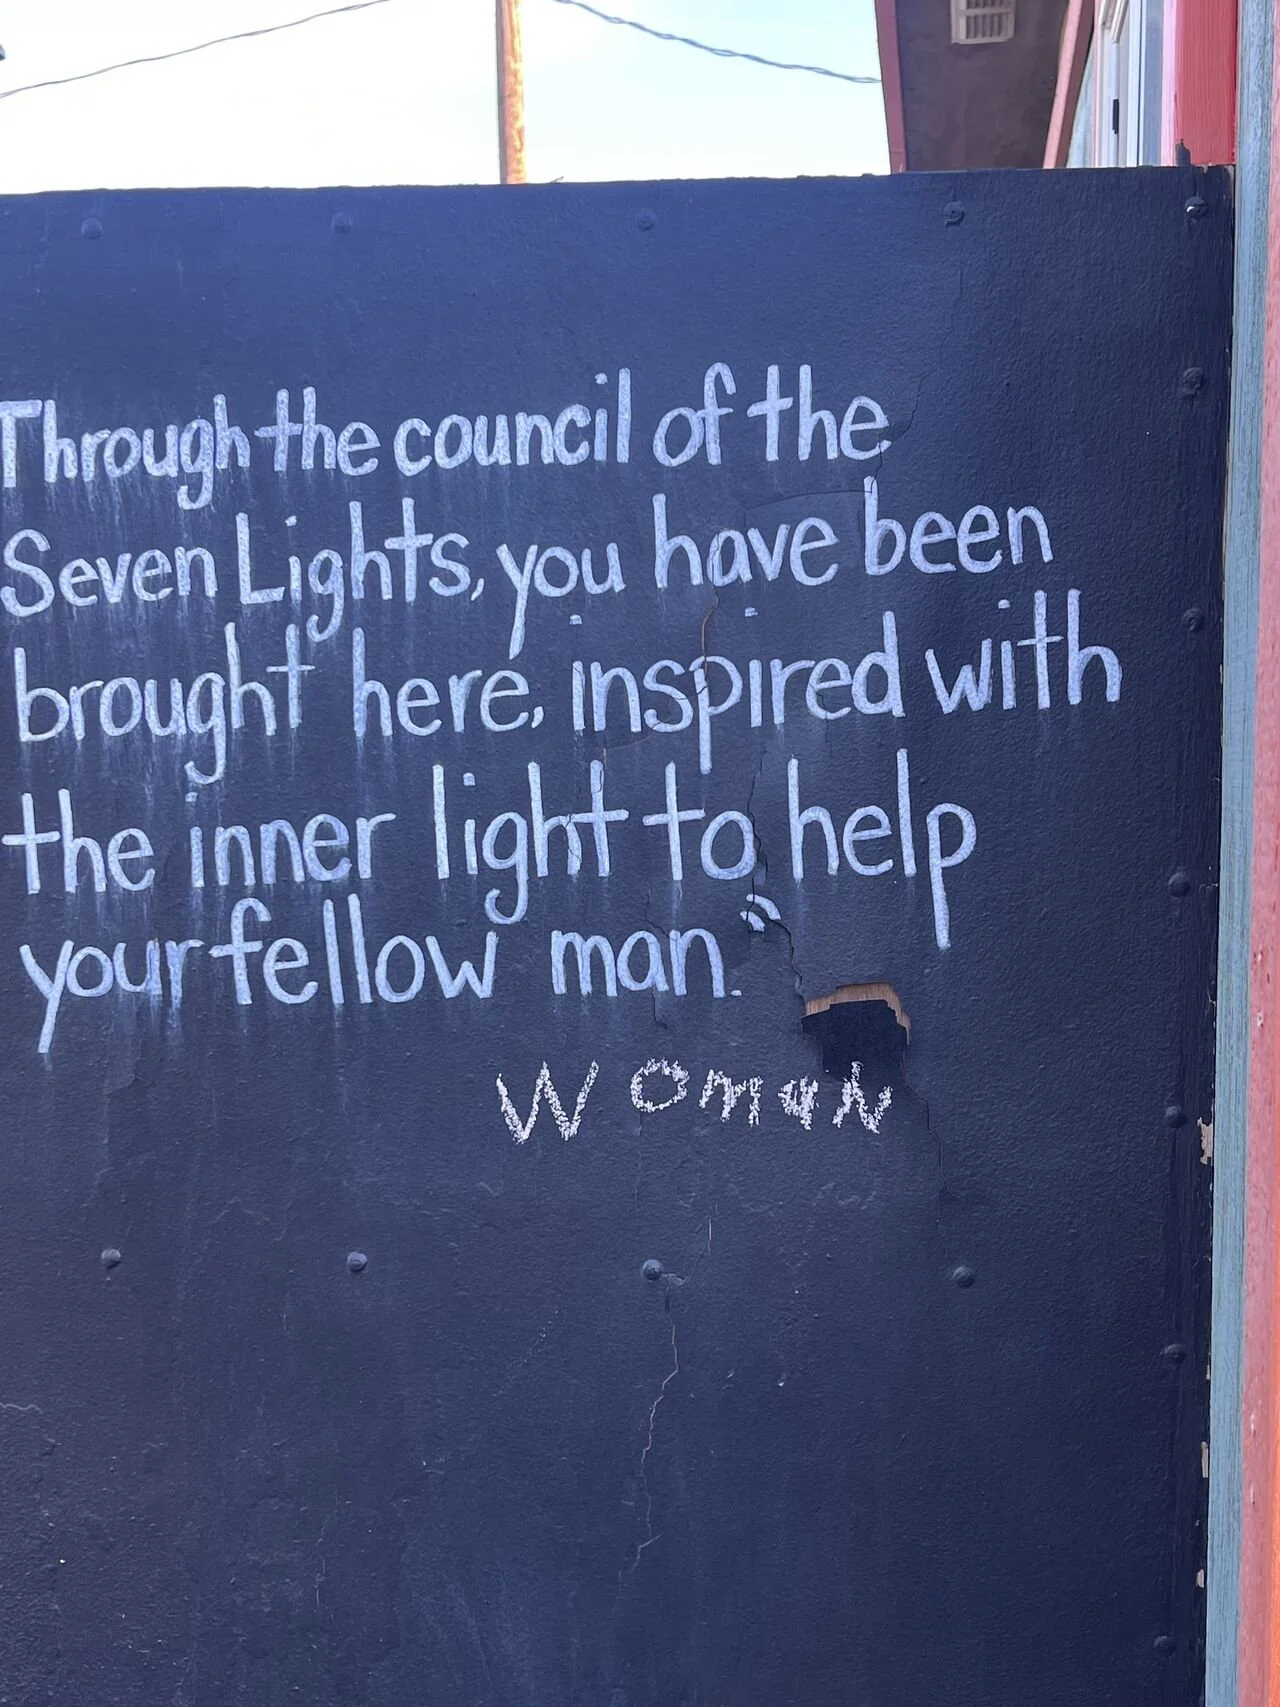 Through the council of the
Seven Lights, you have been
brought here, inspired with
the inner light to help
your fellow man."
Woman